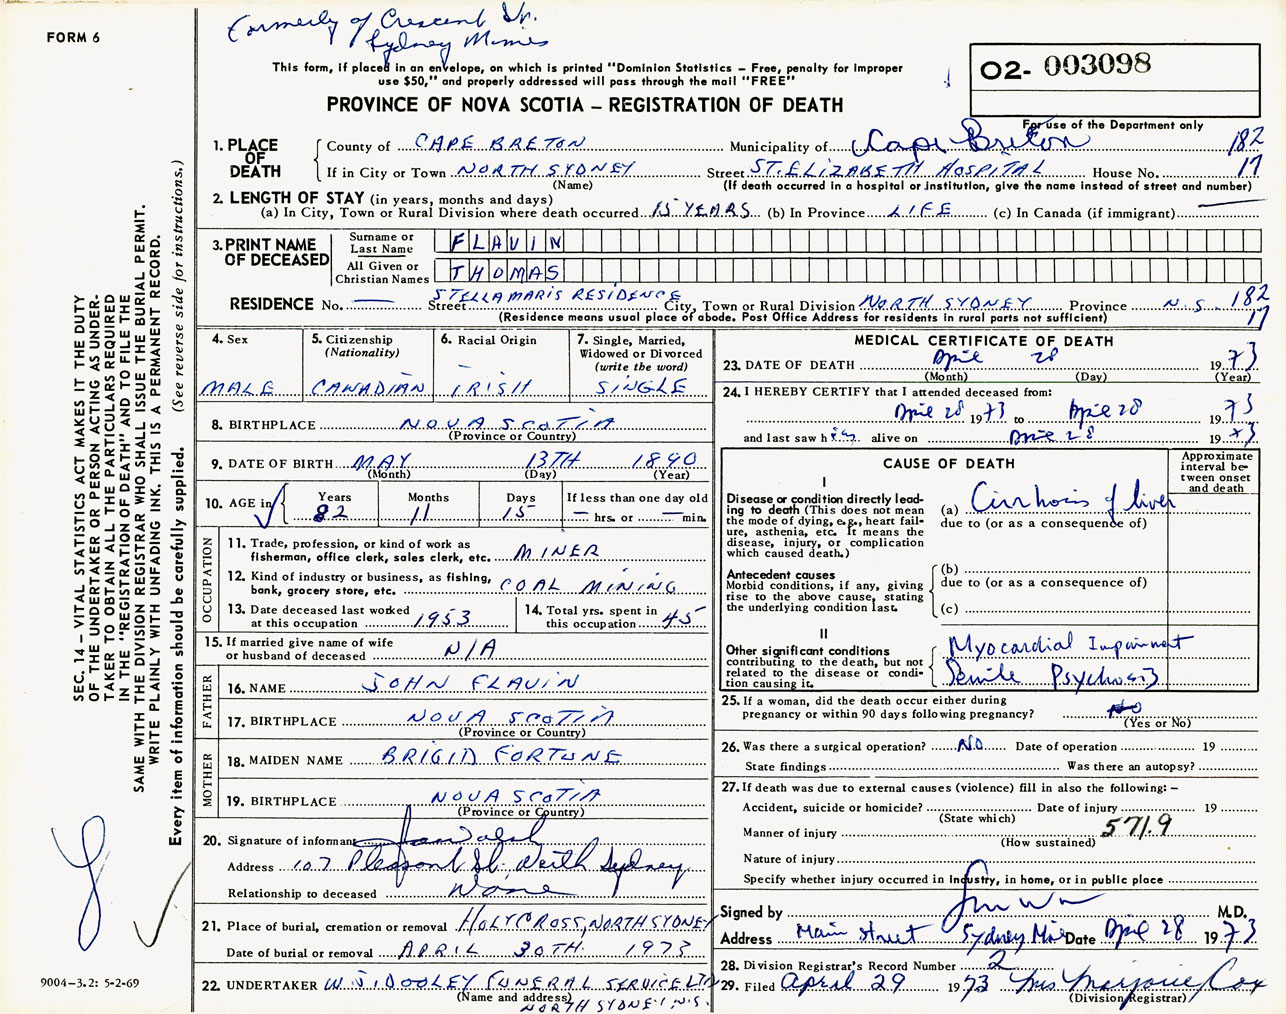 Formerly of Crescent St.
Sydney Mines
FORM 6
This form, if placed in an envelope, on which is printed "Dominion Statistics – Free, penalty for improper
use $50," and properly addressed will pass through the mail "FREE"
O2- 003098
PROVINCE OF NOVA SCOTIA – REGISTRATION OF DEATH
For use of the Department only
1. PLACE OF DEATH
County of CAPE BRETON Municipality of Cape Breton 182
If in City or Town NORTH SYDNEY Street ST. ELIZABETH HOSPITAL House No. 17
(Name) (If death occurred in a hospital or institution, give the name instead of street and number)
2. LENGTH OF STAY (in years, months and days)
(a) In City, Town or Rural Division where death occurred 15 YEARS (b) In Province LIFE (c) In Canada (if immigrant)
3. PRINT NAME OF DECEASED
Surname or Last Name FLAVIN
All Given or Christian Names THOMAS
RESIDENCE No. — Street STELLA MARIS RESIDENCE City, Town or Rural Division NORTH SYDNEY Province N.S. 182
(Residence means usual place of abode. Post Office Address for residents in rural parts not sufficient) 17
4. Sex
MALE
5. Citizenship
(Nationality)
CANADIAN
6. Racial Origin
IRISH
7. Single, Married,
Widowed or Divorced
(write the word)
SINGLE
8. BIRTHPLACE NOVA SCOTIA
(Province or Country)
9. DATE OF BIRTH MAY 13TH 1890
(Month) (Day) (Year)
10. AGE in Years Months Days If less than one day old
82 11 15 — hrs. or — min.
OCCUPATION
11. Trade, profession, or kind of work as
fisherman, office clerk, sales clerk, etc. MINER
12. Kind of industry or business, as fishing,
bank, grocery store, etc. COAL MINING
13. Date deceased last worked
at this occupation 1953
14. Total yrs. spent in
this occupation 45
15. If married give name of wife
or husband of deceased N/A
FATHER
16. NAME JOHN FLAVIN
17. BIRTHPLACE NOVA SCOTIA
(Province or Country)
MOTHER
18. MAIDEN NAME BRIGID FORTUNE
19. BIRTHPLACE NOVA SCOTIA
(Province or Country)
20. Signature of informant
Address 107 Pleasant St. North Sydney
Relationship to deceased None
21. Place of burial, cremation or removal HOLY CROSS, NORTH SYDNEY
Date of burial or removal APRIL 30TH 1973
22. UNDERTAKER W. J. DOOLEY FUNERAL SERVICE LTD
(Name and address) NORTH SYDNEY, N.S.
MEDICAL CERTIFICATE OF DEATH
23. DATE OF DEATH April 28 1973
(Month) (Day) (Year)
24. I HEREBY CERTIFY that I attended deceased from:
April 28 1973 to April 28 1973
and last saw him alive on April 28 1973
CAUSE OF DEATH
Approximate
interval be-
tween onset
and death
I
Disease or condition directly lead-
ing to death (This does not mean
the mode of dying, e.g., heart fail-
ure, asthenia, etc. It means the
disease, injury, or complication
which caused death.)
(a) Cirrhosis of liver
due to (or as a consequence of)
Antecedent causes
Morbid conditions, if any, giving
rise to the above cause, stating
the underlying condition last.
(b)
due to (or as a consequence of)
(c)
II
Other significant conditions
contributing to the death, but not
related to the disease or condi-
tion causing it.
Myocardial Impairment
Senile Psychosis
25. If a woman, did the death occur either during
pregnancy or within 90 days following pregnancy? No
(Yes or No)
26. Was there a surgical operation? No Date of operation 19
State findings Was there an autopsy?
27. If death was due to external causes (violence) fill in also the following: –
Accident, suicide or homicide? Date of injury 19
(State which)
Manner of injury 571.9
(How sustained)
Nature of injury
Specify whether injury occurred in Industry, in home, or in public place
Signed by M.D.
Address Main Street Sydney Mines Date April 28 1973
28. Division Registrar's Record Number 2
29. Filed April 29 1973 Mrs Marjorie Cox
(Division Registrar)
SEC. 14 – VITAL STATISTICS ACT MAKES IT THE DUTY
OF THE UNDERTAKER OR PERSON ACTING AS UNDER-
TAKER TO OBTAIN ALL THE PARTICULARS REQUIRED
IN THE "REGISTRATION OF DEATH" AND TO FILE THE
SAME WITH THE DIVISION REGISTRAR WHO SHALL ISSUE THE BURIAL PERMIT.
WRITE PLAINLY WITH UNFADING INK. THIS IS A PERMANENT RECORD.
Every item of information should be carefully supplied. (See reverse side for instructions.)
9004–3.2: 5-2-69